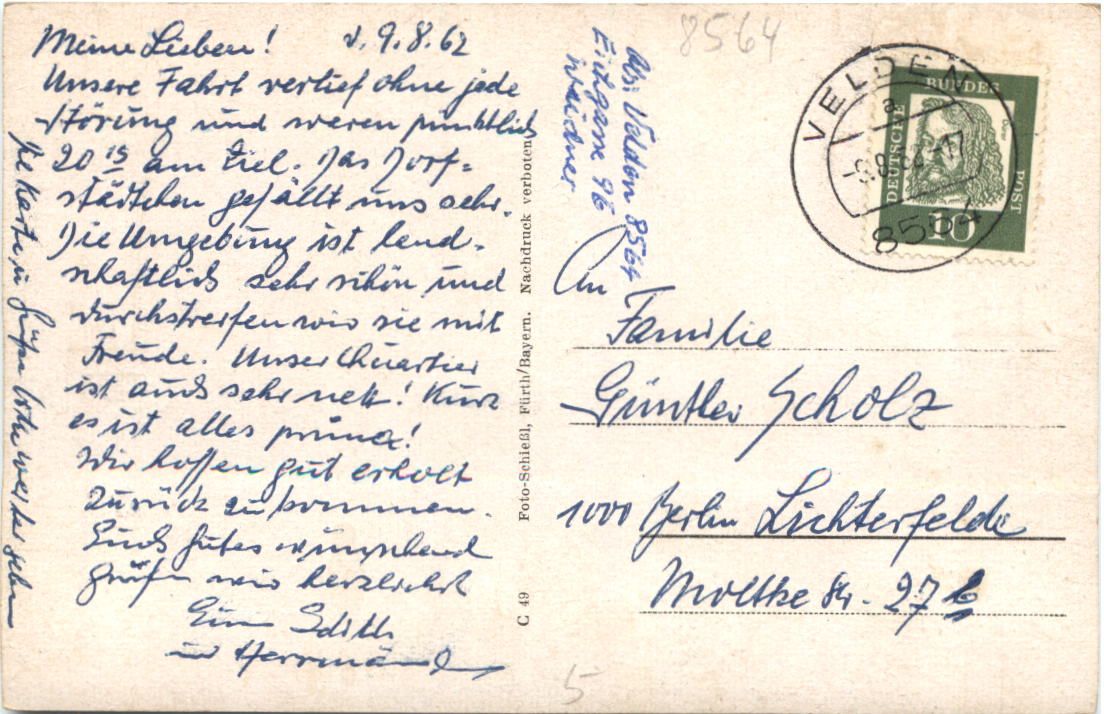 Meine Lieben! d. 9.8.62
Unsere Fahrt verlief ohne jede
Störung und waren pünktlich
20 15 am Ziel. Das Dorf=
städtchen gefällt uns sehr.
Die Umgebung ist land-
schaftlich sehr schön und
durchstreifen wir sie mit
Freude. Unser Quartier
ist auch sehr nett! Kurz
es ist alles prima!
Wir hoffen gut erholt
zurück zu kommen.
Euch gutes wünschend
grüßen wir herzlichst
Eure Edith
und Herrmann
Foto-Schießl, Fürth/Bayern. Nachdruck verboten
C 49
8564
Abs. Velden 8564
96
VELDEN
a
-17
8564
DEUTSCHE
BUNDES
POST
10
An
Familie
Günther Scholz
1000 Berlin Lichterfelde
Moltke str. 27 b
5